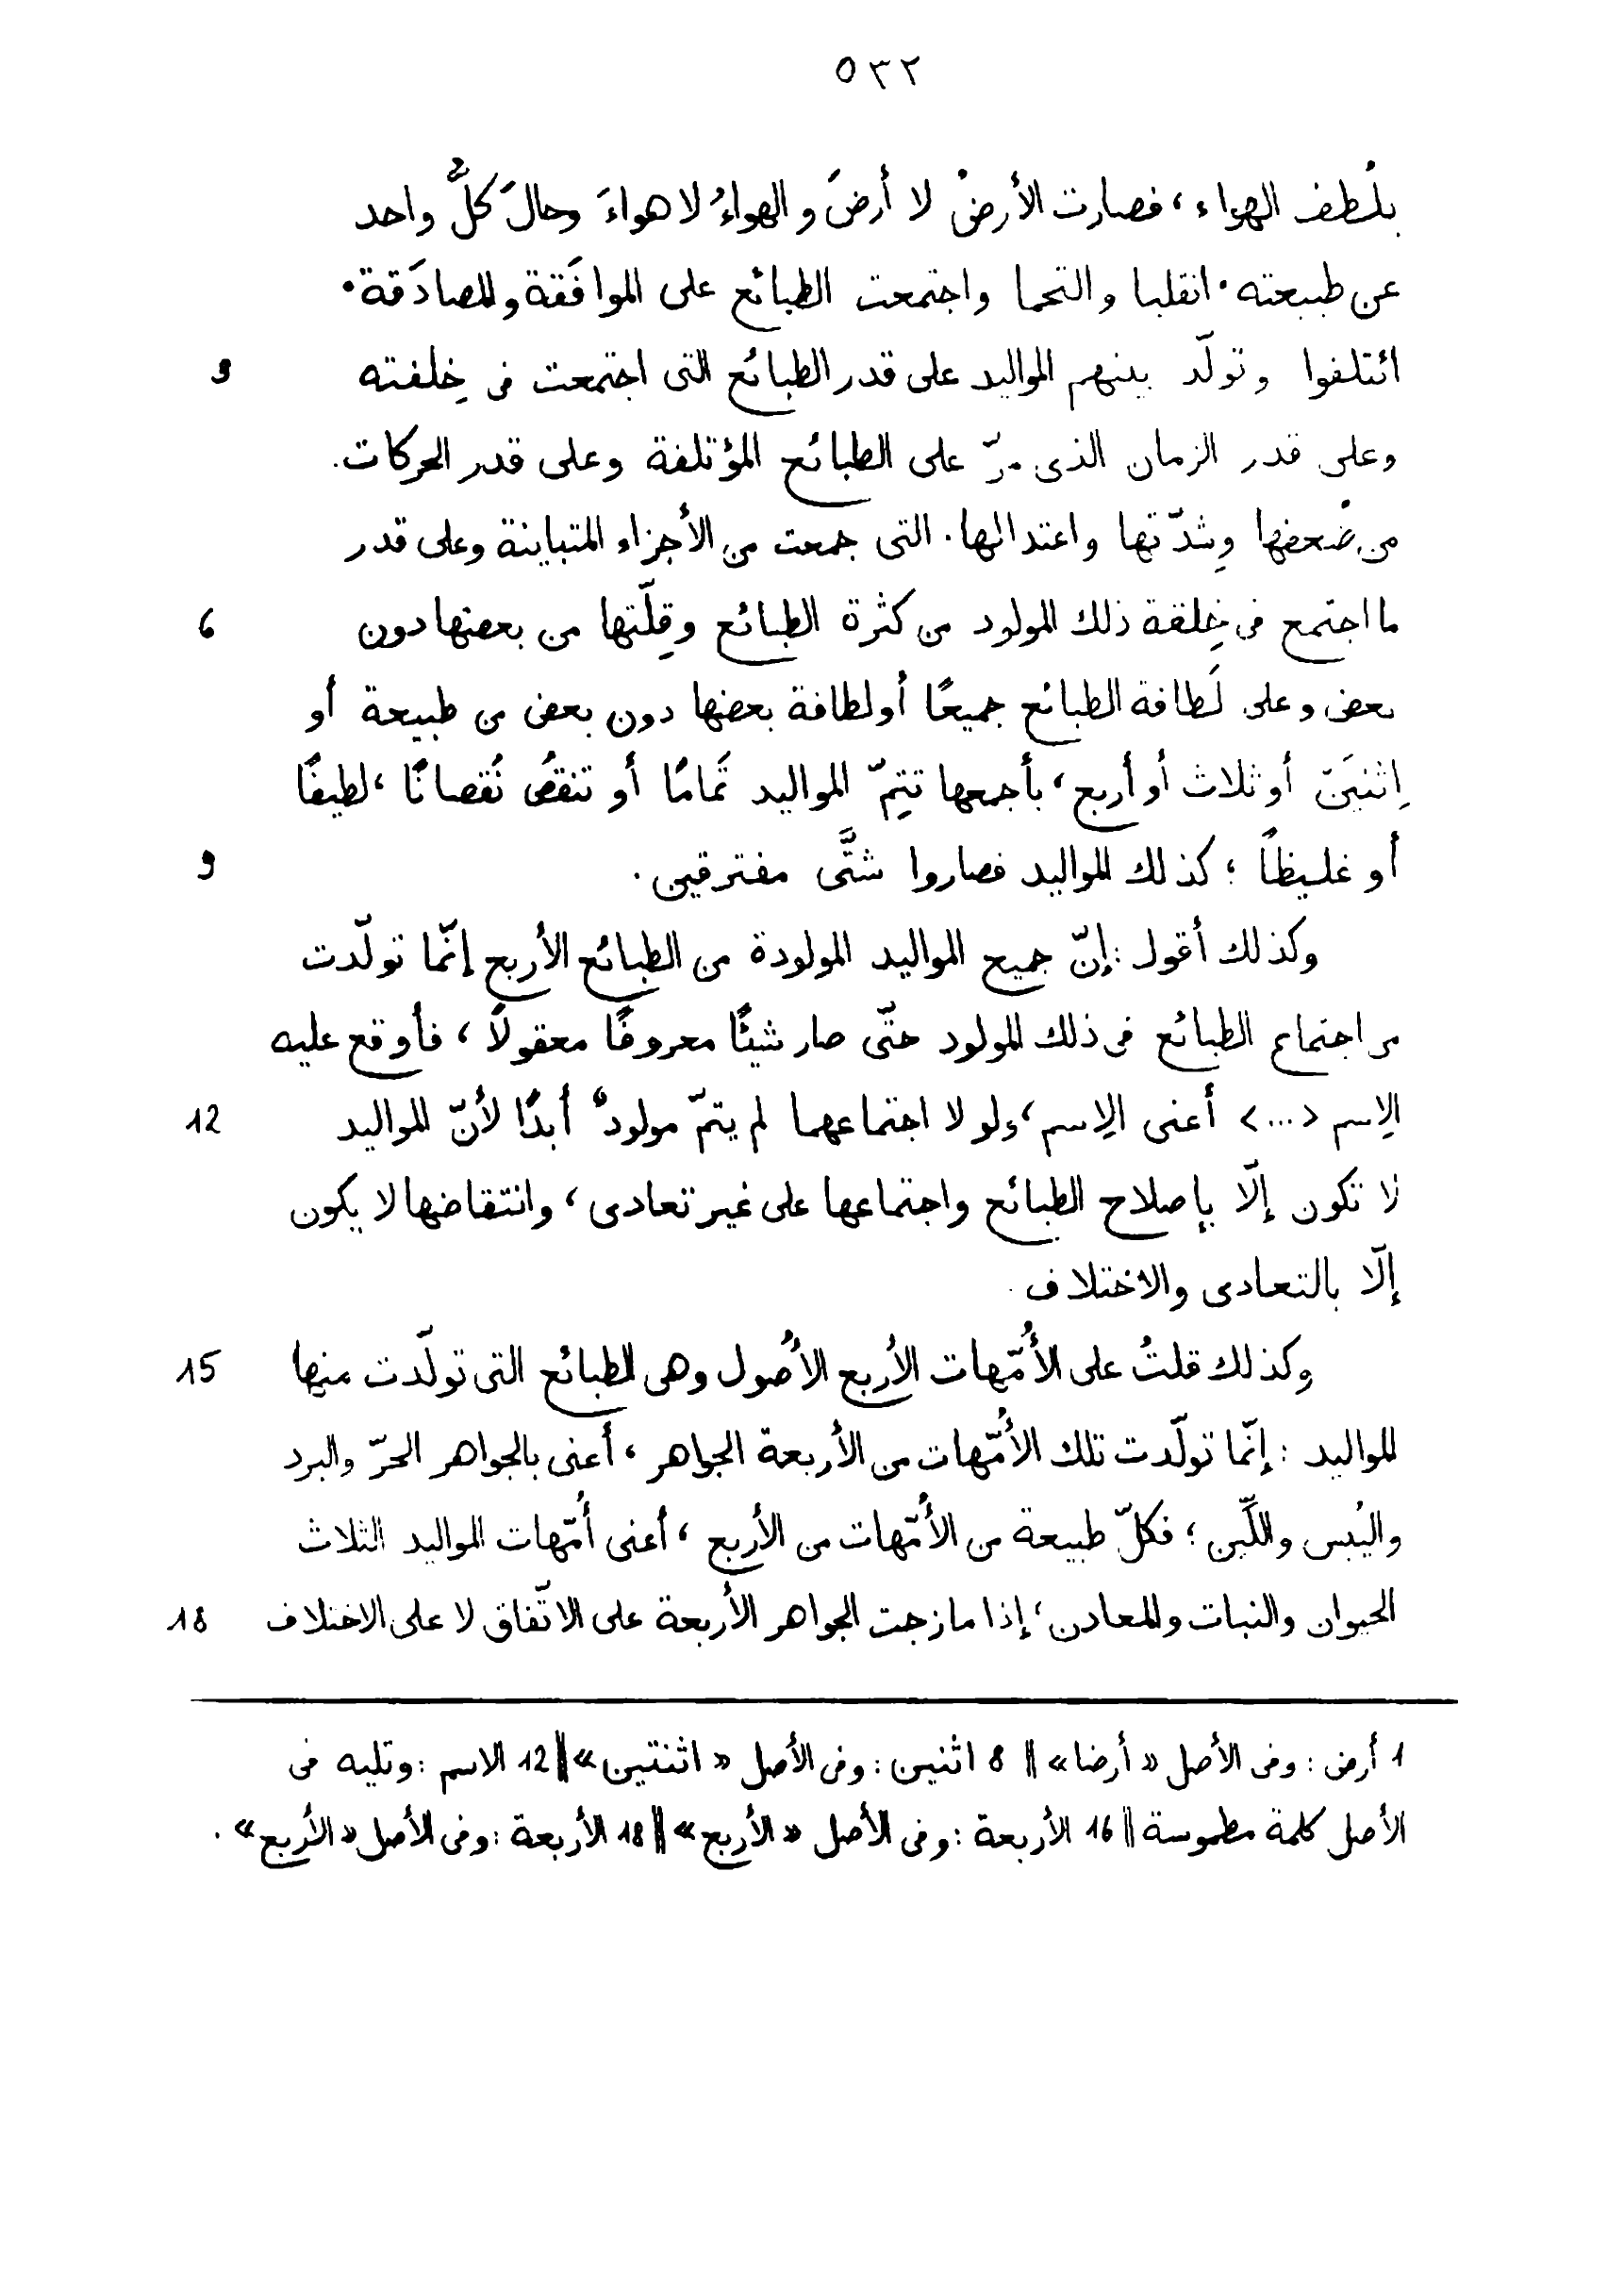 ٥٣٢
بلُطف الهواء، فصارت الأرضُ لا أرضَ والهواءُ لا هواءَ وحالَ كلُّ واحد
عن طبيعته. انقلبا والتحما واجتمعت الطبائع على الموافَقة والمصادَقة.
ائتلفوا وتولّد بينهم المواليد على قدر الطبائع التى اجتمعت فى خِلقته 3
وعلى قدر الزمان الذى مرّ على الطبائع المؤتلفة وعلى قدر الحركات.
من ضُعفها وشِدّتها واعتدالها. التى جمعت من الأجزاء المتباينة وعلى قدر
ما اجتمع فى خِلقة ذلك المولود من كثرة الطبائع وقِلّتها من بعضها دون 6
بعض وعلى لَطافة الطبائع جميعًا أو لطافة بعضها دون بعض من طبيعة أو
اِثنيَن أو ثلاث أو أربع، بأجمعها تتِمّ المواليد تَمامًا أو تنقصُ نُقصانًا، لطيفًا
أو غليظاً؛ كذلك المواليد فصاروا شتَّى مفترقين. 9
وكذلك أقول: إنّ جميع المواليد المولودة من الطبائع الأربع إنّما تولّدت
من اجتماع الطبائع فى ذلك المولود حتّى صار شيئًا معروفًا معقولاً، فأوقع عليه
الاِسم <...> أعنى الاِسم، ولو لا اجتماعهما لم يتمّ مولودٌ أبدًا لأنّ المواليد 12
لا تكون إلّا بإصلاح الطبائع واجتماعها على غير تعادى، وانتقاضها لا يكون
إلّا بالتعادى والاختلاف.
وكذلك قلتُ على الأُمّهات الأربع الأُصول وهى الطبائع التى تولّدت منها 15
المواليد: إنّما تولّدت تلك الأُمّهات من الأربعة الجواهر، أعنى بالجواهر الحرّ والبرد
واليُبس واللِّين؛ فكلّ طبيعة من الأُمّهات من الأربع، أعنى أُمّهات المواليد الثلاث
الحيوان والنبات والمعادن، إذا مازجت الجواهر الأربعة على الاتّفاق لا على الاختلاف 18
1 أرض: وفى الأصل «أرضا» || 8 اثنين: وفى الأصل «اثنتين» || 12 الاسم: وتليه فى
الأصل كلمة مطموسة || 16 الأربعة: وفى الأصل «الأربع» || 18 الأربعة: وفى الأصل «الأربع».